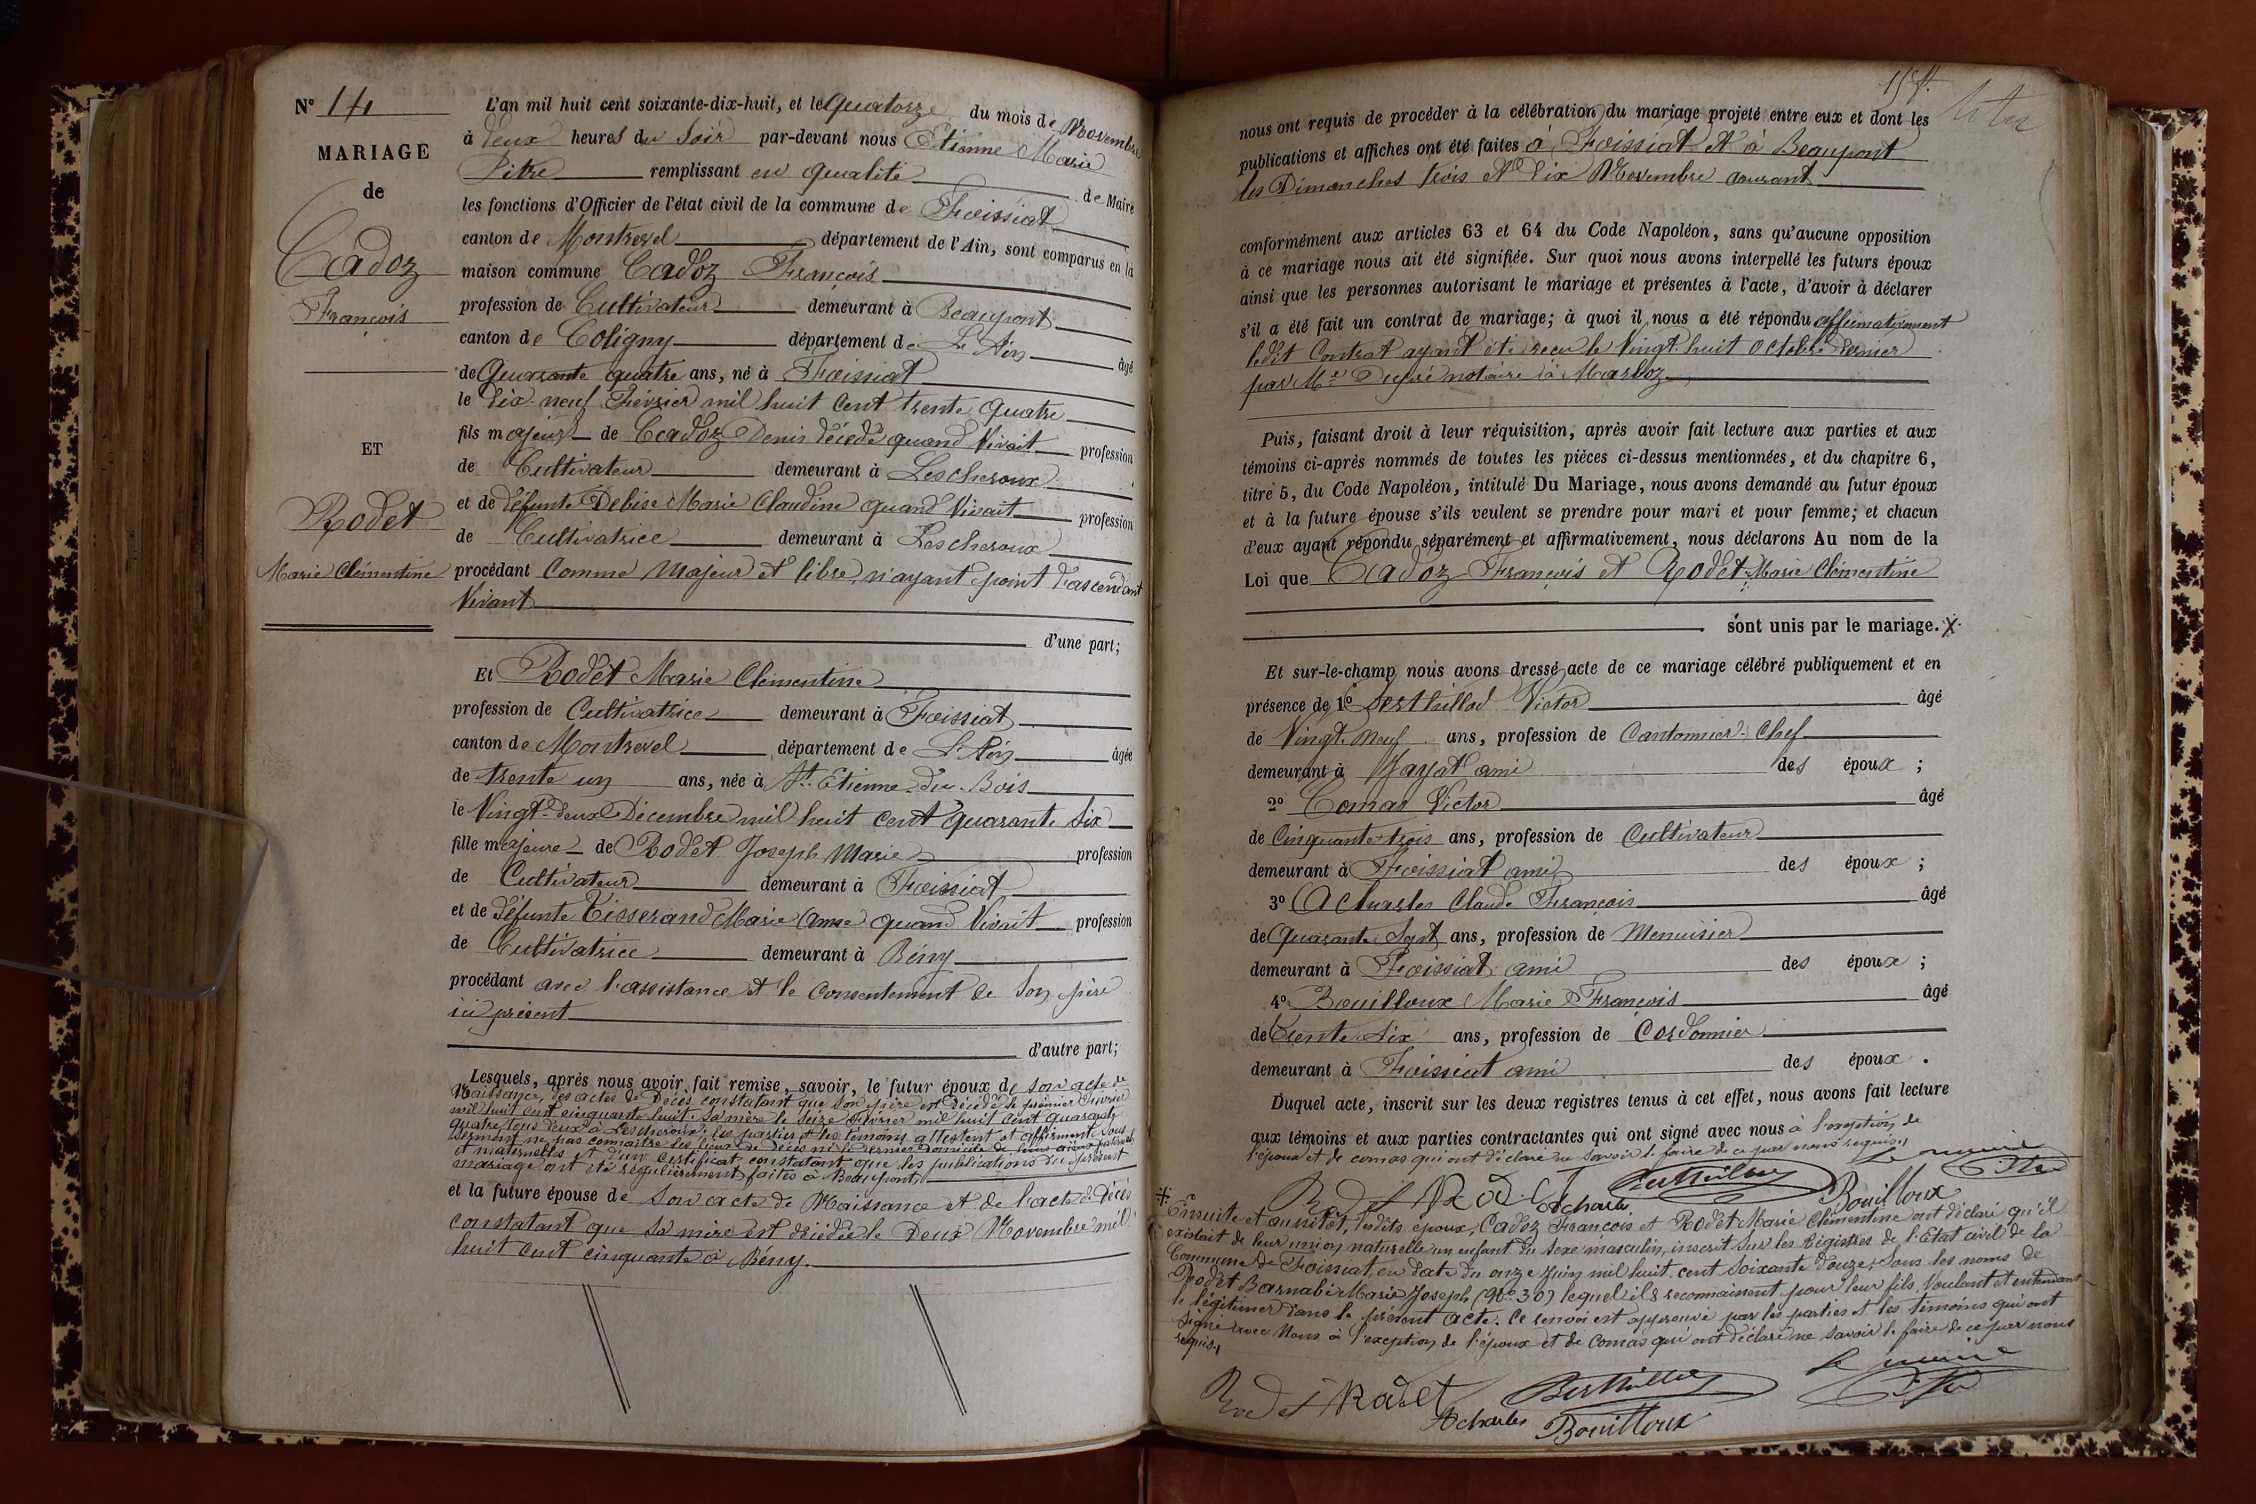 N° 14
MARIAGE
de
Cadoz
François
ET
Rodet
Marie Clémentine
L'an mil huit cent soixante-dix-huit, et le Quatorze du mois de Novembre
à deux heures du Soir par-devant nous Etienne Marie
Pitre remplissant en qualité de Maire
les fonctions d'Officier de l'état civil de la commune de Foissiat
canton de Montrevel département de l'Ain, sont comparus en la
maison commune Cadoz François
profession de Cultivateur demeurant à Beaupont
canton de Coligny département de L'Ain âgé
de Quarante quatre ans, né à Foissiat
le dix-neuf Février mil huit cent trente quatre
fils majeur de Cadoz Denis décédé quand Vivait profession
de Cultivateur demeurant à Lescheroux
et de défunte Debise Marie Claudine quand Vivait profession
de Cultivatrice demeurant à Lescheroux
procédant Comme Majeur et libre, n'ayant point d'ascendant
Vivant
d'une part;
Et Rodet Marie Clémentine
profession de Cultivatrice demeurant à Foissiat
canton de Montrevel département de L'Ain âgée
de trente un ans, née à St Etienne du Bois
le Vingt-deux Décembre mil huit cent quarante Six
fille majeure de Rodet Joseph Marie profession
de Cultivateur demeurant à Foissiat
et de défunte Tisserand Marie Anne quand Vivait profession
de Cultivatrice demeurant à Bény
procédant avec l'assistance et le Consentement de Son père
ici présent
d'autre part;
Lesquels, après nous avoir fait remise, savoir, le futur époux de son acte de
Naissance, des actes de Décès constatant que son père est décédé le premier Février
mil huit cent cinquante huit, Sa mère le Seize Février mil huit cent quarante
quatre tous deux à Lescheroux; les parties et les témoins attestent et affirment Sous
serment ne pas connaître les lieux de décès ni le dernier domicile de leurs aïeux paternels
et maternelles et d'un certificat constatant que les publications du présent
mariage ont été régulièrement faites à Beaupont;
et la future épouse de Son acte de Naissance et de l'acte de Décès
constatant que Sa mère est décédée le Deux Novembre mil
huit cent cinquante à Bény.
nous ont requis de procéder à la célébration du mariage projeté entre eux et dont les
publications et affiches ont été faites à Foissiat et à Beaupont
les Dimanches trois et Dix Novembre courant
conformément aux articles 63 et 64 du Code Napoléon, sans qu'aucune opposition
à ce mariage nous ait été signifiée. Sur quoi nous avons interpellé les futurs époux
ainsi que les personnes autorisant le mariage et présentes à l'acte, d'avoir à déclarer
s'il a été fait un contrat de mariage; à quoi il nous a été répondu affirmativement
ledit Contrat ayant été reçu le Vingt-huit Octobre dernier
par Me notaire à Marboz
Puis, faisant droit à leur réquisition, après avoir fait lecture aux parties et aux
témoins ci-après nommés de toutes les pièces ci-dessus mentionnées, et du chapitre 6,
titre 5, du Code Napoléon, intitulé Du Mariage, nous avons demandé au futur époux
et à la future épouse s'ils veulent se prendre pour mari et pour femme; et chacun
d'eux ayant répondu séparément et affirmativement, nous déclarons Au nom de la
Loi que Cadoz François et Rodet Marie Clémentine
sont unis par le mariage. X
Et sur-le-champ nous avons dressé acte de ce mariage célébré publiquement et en
présence de 1° Berthillod Victor âgé
de Vingt-Neuf ans, profession de Cantonnier-Chef
demeurant à Jayat ami des époux ;
2° Comas Victor âgé
de Cinquante-trois ans, profession de Cultivateur
demeurant à Foissiat ami des époux ;
3° Acharles Claude François âgé
de Quarante Sept ans, profession de Menuisier
demeurant à Foissiat ami des époux ;
4° Bouilloux Marie François âgé
de Trente Six ans, profession de Cordonnier
demeurant à Foissiat ami des époux .
Duquel acte, inscrit sur les deux registres tenus à cet effet, nous avons fait lecture
aux témoins et aux parties contractantes qui ont signé avec nous à l'exception de
l'époux et de comas qui ont déclaré ne Savoir le faire de ce par nous requis.
Le maire
Pitre
Rodet Rodet Acharles Berthillod Bouilloux
Ensuite et aussitôt, lesdits époux, Cadoz François et Rodet Marie Clémentine ont déclaré qu'il
existait de leur union naturelle un enfant du sexe masculin, inscrit Sur les Régistres de l'Etat civil de la
Commune de Foissiat, en date du onze Juin mil huit cent Soixante douze, Sous les noms de
Rodet Barnabé Marie Joseph (No 30) lequel ils reconnaissent pour leur fils, Voulant et entendant
le légitimer dans le présent acte. Ce renvoi est approuvé par les parties et les témoins qui ont
Signé avec Nous à l'exception de l'époux et de Comas qui ont déclaré ne Savoir le faire de ce par nous
requis.
Rodet Rodet Berthillod Le maire
Acharles Bouilloux Pitre